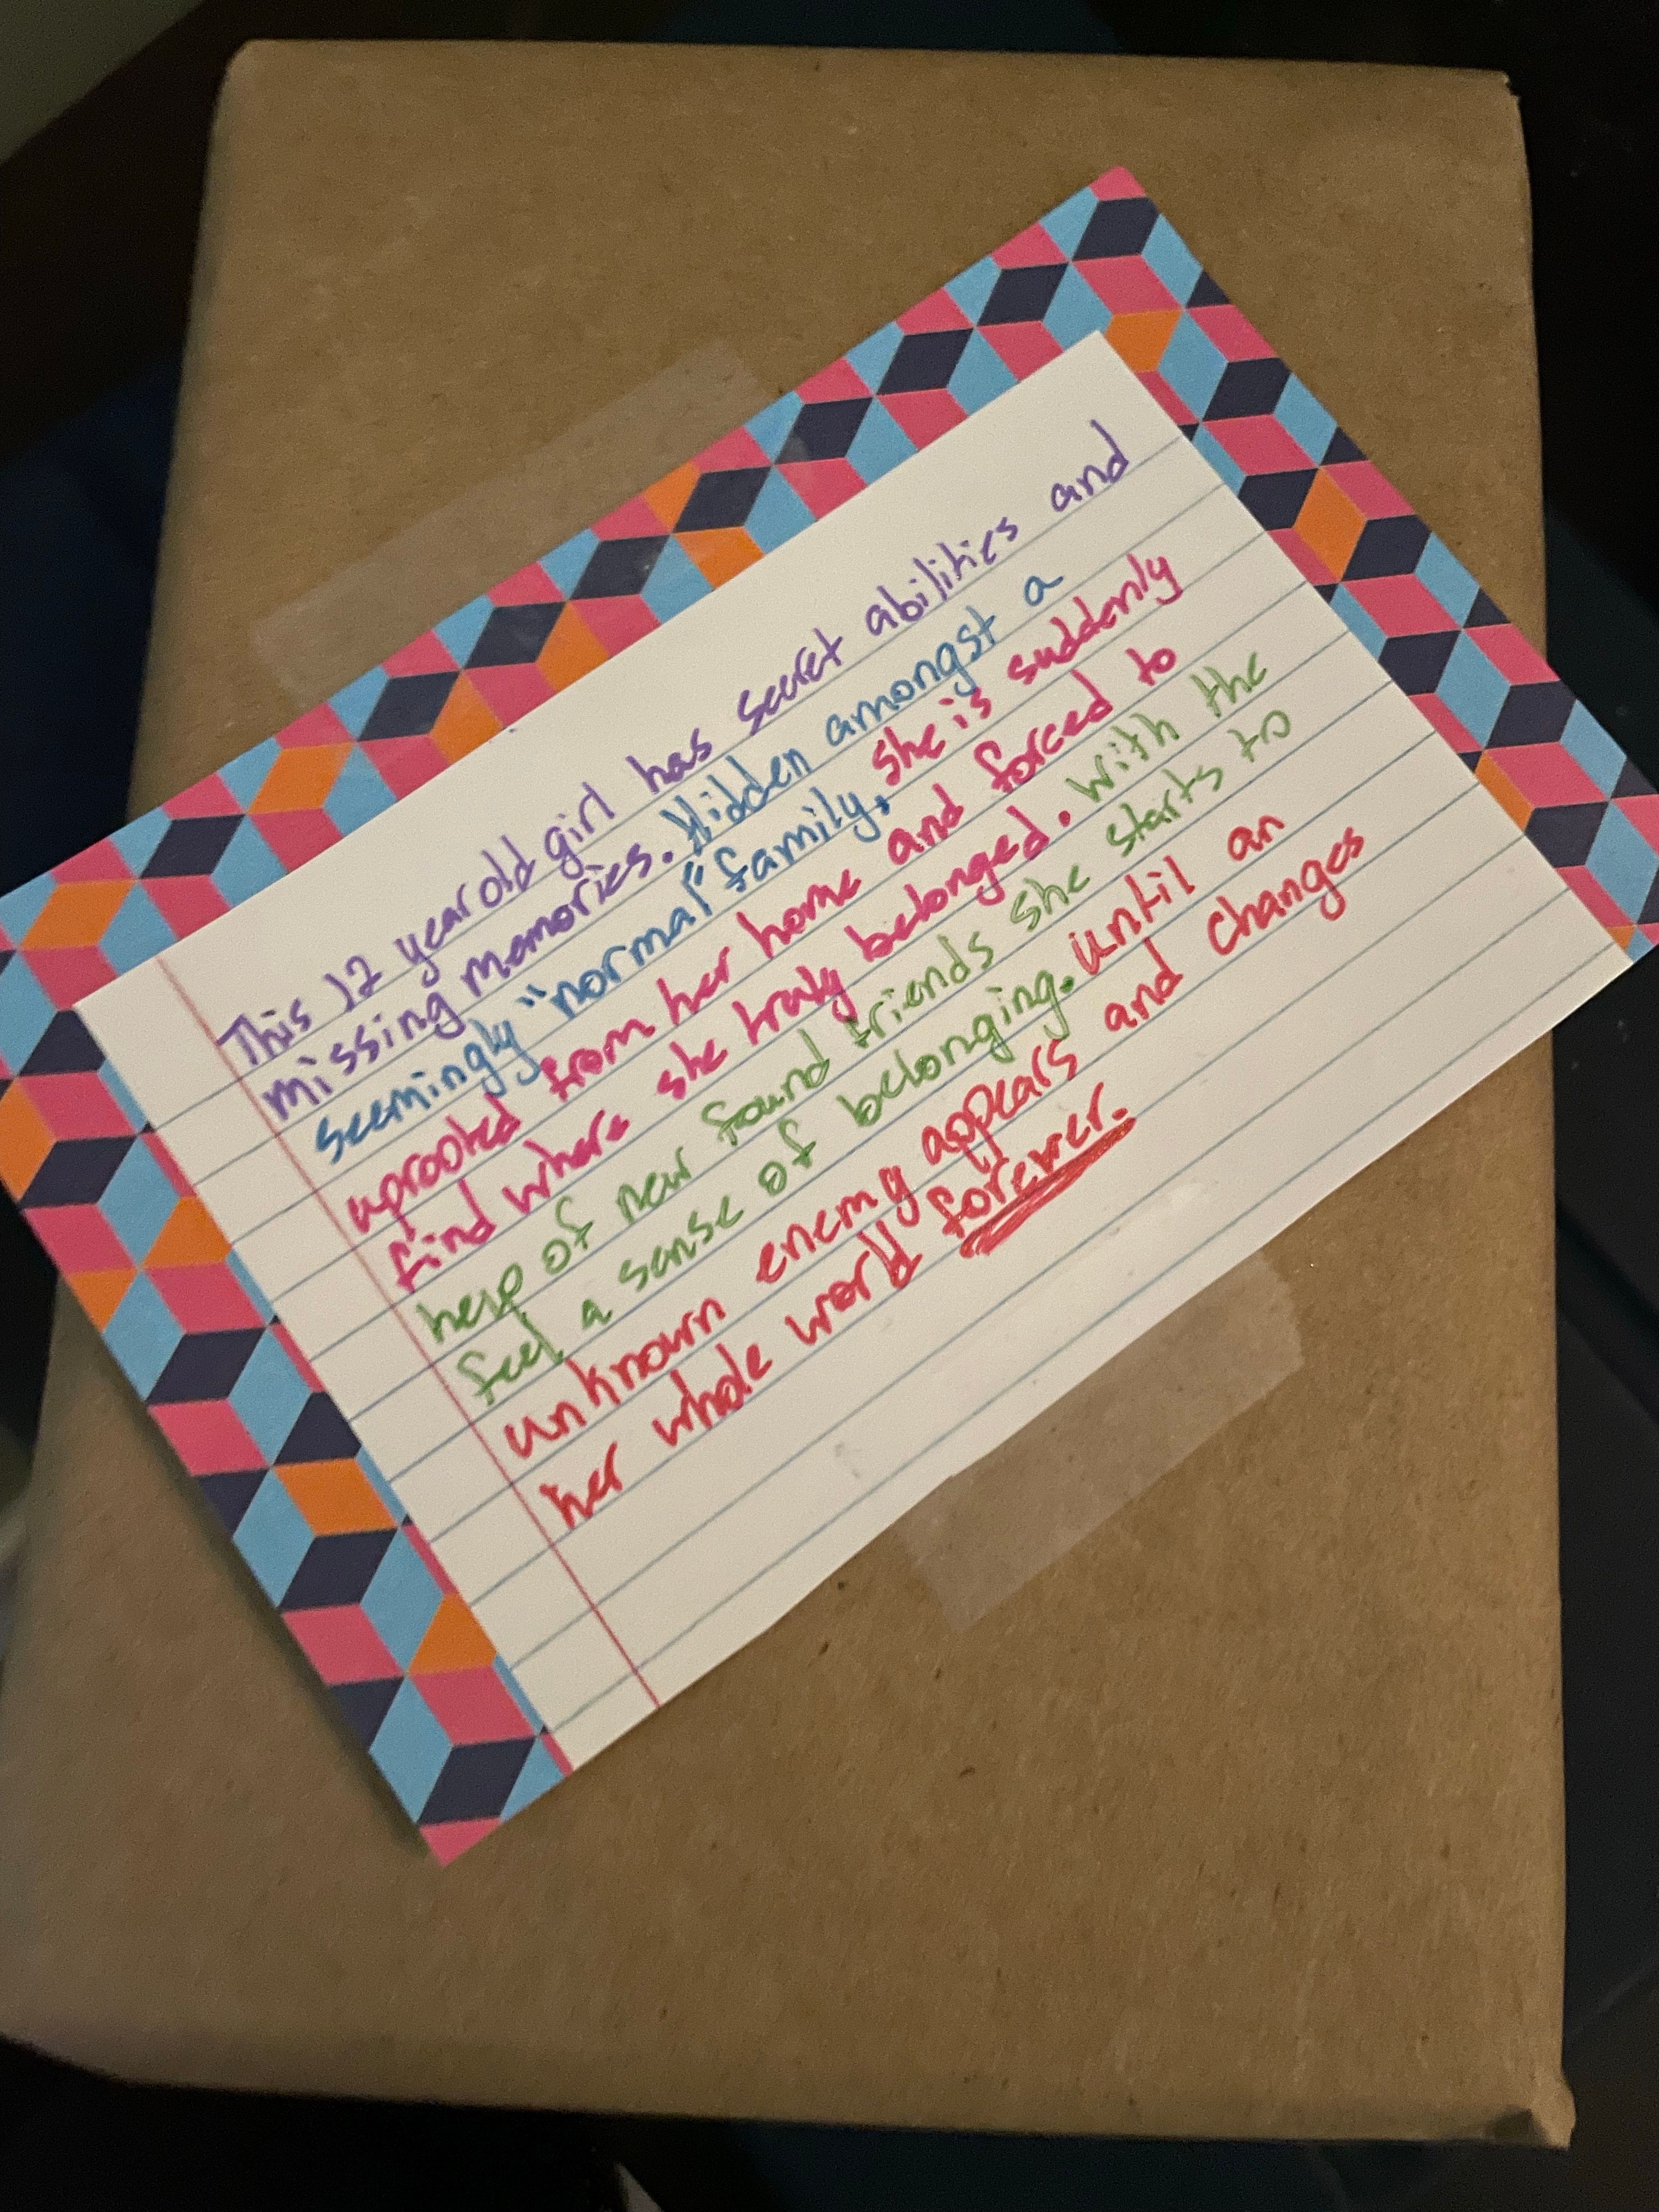 This 12 year old girl has secret abilities and
missing memories. Hidden amongst a
seemingly "normal" family, she is suddenly
uprooted from her home and forced to
find where she truly belonged. With the
help of new found friends she starts to
feel a sense of belonging. until an
unknown enemy appears and changes
her whole world forever.